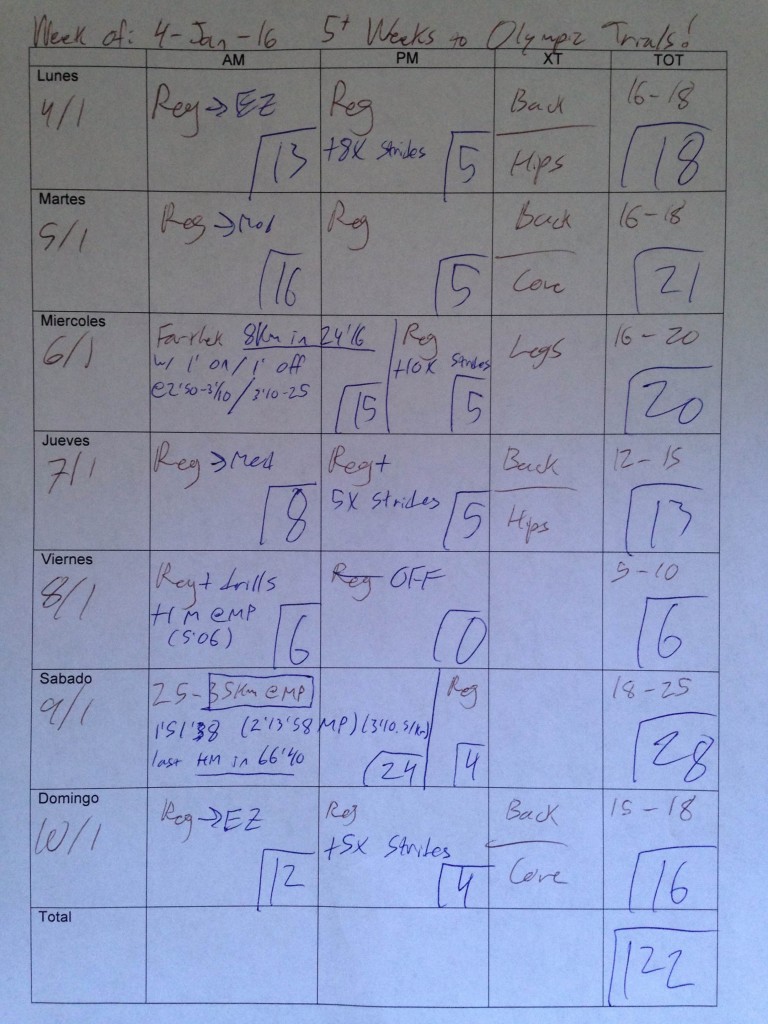 Week of: 4-Jan-16 5+ Weeks to Olympic Trials!
AM PM XT TOT
Lunes
4/1
Reg → EZ
13
Reg
+8x strides
5
Back
Hips
16-18
18
Martes
5/1
Reg → Mod
16
Reg
5
Back
Core
16-18
21
Miercoles
6/1
Fartlek 8Km in 24'16
w/ 1' on/1' off
@2'50-3'10/3'10-25
15
Reg
+10x strides
5
Legs
16-20
20
Jueves
7/1
Reg → Med
8
Reg+
5x strides
5
Back
Hips
12-15
13
Viernes
8/1
Reg + drills
+1 M @MP
(5:06)
6
Reg OFF
0
5-10
6
Sabado
9/1
25-35Km @MP
1'51'38 (2'13'58 MP) (3'10.5/Km)
last HM in 66'40
24
Reg
4
18-25
28
Domingo
10/1
Reg → EZ
12
Reg
+5x strides
4
Back
Core
15-18
16
Total
122